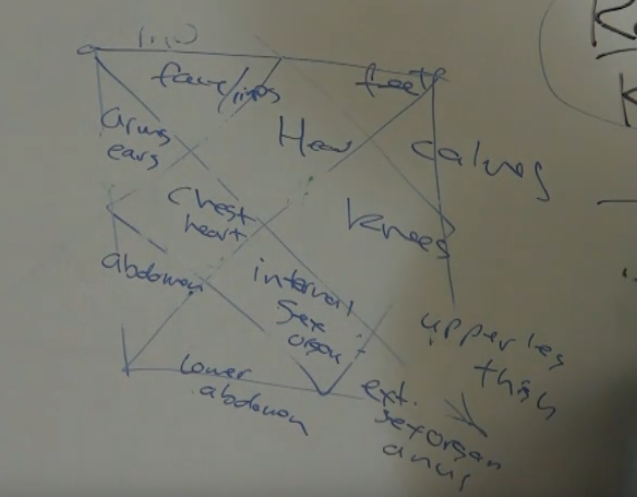 face/lips
feet
arms
ears
Hea
calves
chest
heart
knees
abdomen
internal
sex
organ
upper leg
thigh
lower
abdomen
ext.
sex organ
anus